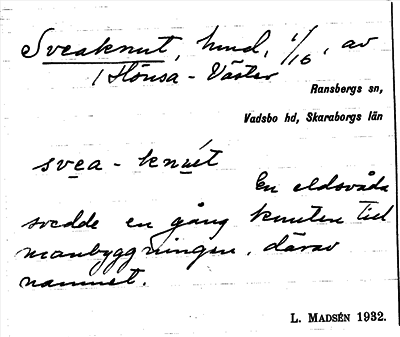 Sveaknut, hmd, 1/16, av
1 Hönsa-Väster
Ransbergs sn,
Vadsbo hd, Skaraborgs län
svea-knut
En eldsvåda
svedde en gång knuten till
manbyggningen, därav
namnet.
L. MADSÉN 1932.